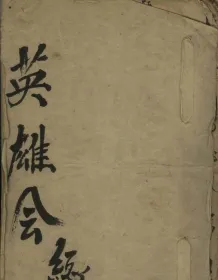 英雄会